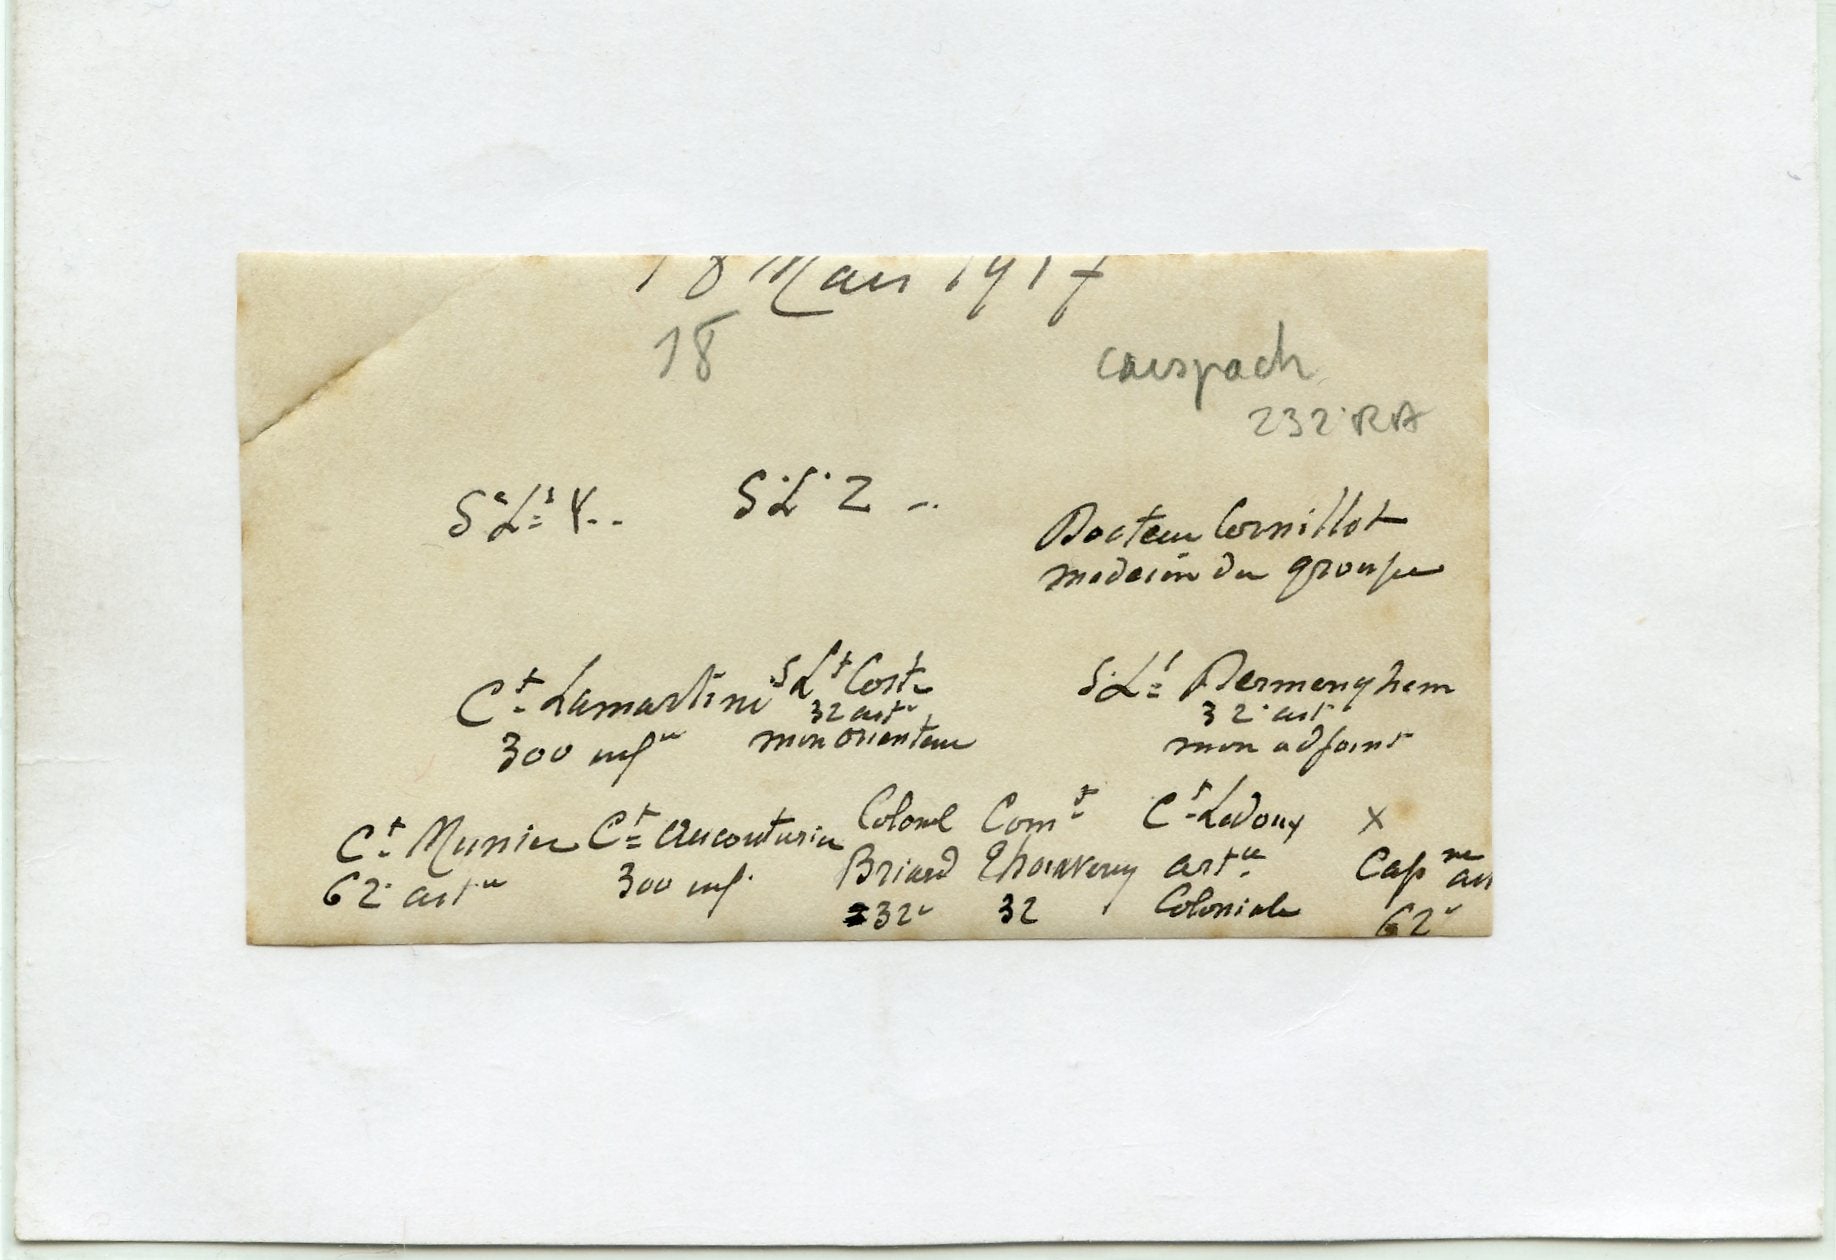 18 Mars 1917
18
caispach
232e RA
S. Lt Y..
S. Lt Z...
Docteur Cornillot
medecin du groupe
Ct Lamartini
300 infie
S Lt Coste
32 artie
mon orienteur
S. Lt Dermenghem
32e art
mon adjoint
Ct Munier
62e artie
Ct Aucouturier
300 inf.
Colonel
Briard
232e
Comt
32
Ct Ledoux
artie
Coloniale
X
Capne art
62e